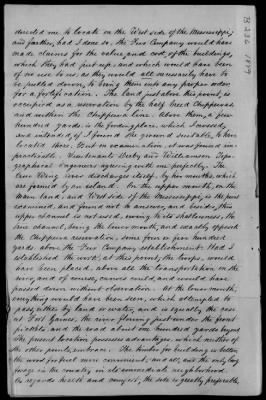 directed me to locate on the West side of the Mississippi;
and farther, had I done so, the Fur Company would have
made claims for the value, and cost, of the buildings,
which they had just put up, and which would have been
of no use to us, as they would all necessarily have to
be pulled down, to bring them into any proper order
for a fortification. The land just above this point, is
occupied as a reservation by the half breed Chippewas
and within the Chippewa line. Above them, a few
hundred yards, is the fording place, which I used,
and intended, if I found the ground suitable, to have
located there. But on examination, it was found im-
practicable. Lieutenants Derby and Williamson, Topo-
graphical Engineers agreeing with me perfectly. The
Crow Wing river discharges itself, by two mouths, which
are formed by an island. On the upper mouth, on the
main land, and West side of the Mississippi, is the point
examined, and found not to answer, and besides, this
upper channel is not used, owing to its shallowness, the
true channel, being the lower mouth, and exactly opposite
the Chippewa reservation, some four or five hundred
yards above the Fur Company establishment. Had I
established the work, at this point, the troops, would
have been placed, above all the transportation on the
river, and of course, canoes could and would have
passed down without observation. At the lower mouth,
everything would have been seen, which attempted to
pass either by land or water, and is equally the case
at Fort Gaines, the river flowing just under the front
pickets, and the road about one hundred yards beyond.
The present location possesses advantages, which neither of
the other points, embrace. The timber for building is better,
the wood for fuel more convenient, and all, and the only, large
forage in the country in its immediate neighborhood.
As regards health and scenery, the site is greatly preferable,
B 226 1849